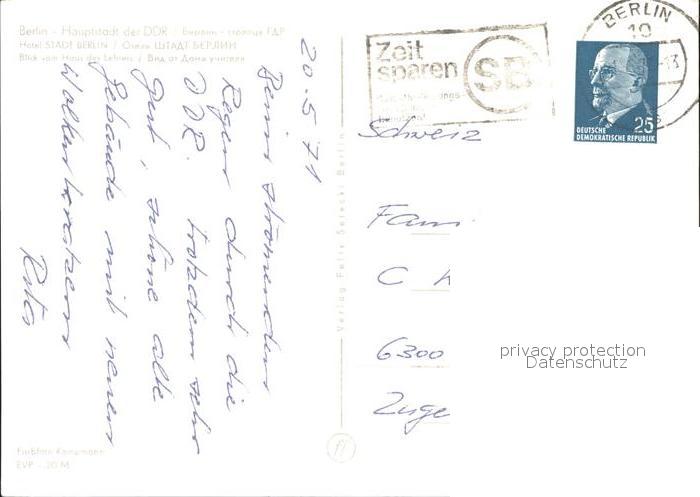 Berlin - Hauptstadt der DDR / Берлин - столица ГДР
Hotel STADT BERLIN / Отель ШТАДТ БЕРЛИН
Blick vom Haus des Lehrers / Вид от Дома учителя
20.5.71
Beim strömenden
Regen durch die
DDR. trotzdem sehr
gut, schöne alte
Gebäude mit neuen
Wolkenkratzern
Zeit
sparen
SB
BERLIN
10
13
DEUTSCHE
DEMOKRATISCHE REPUBLIK
25
Schweiz
Fam.
C
6300
Zuge
privacy protection
Datenschutz
Verlag Felix Setecki Berlin
EVP -.20 M